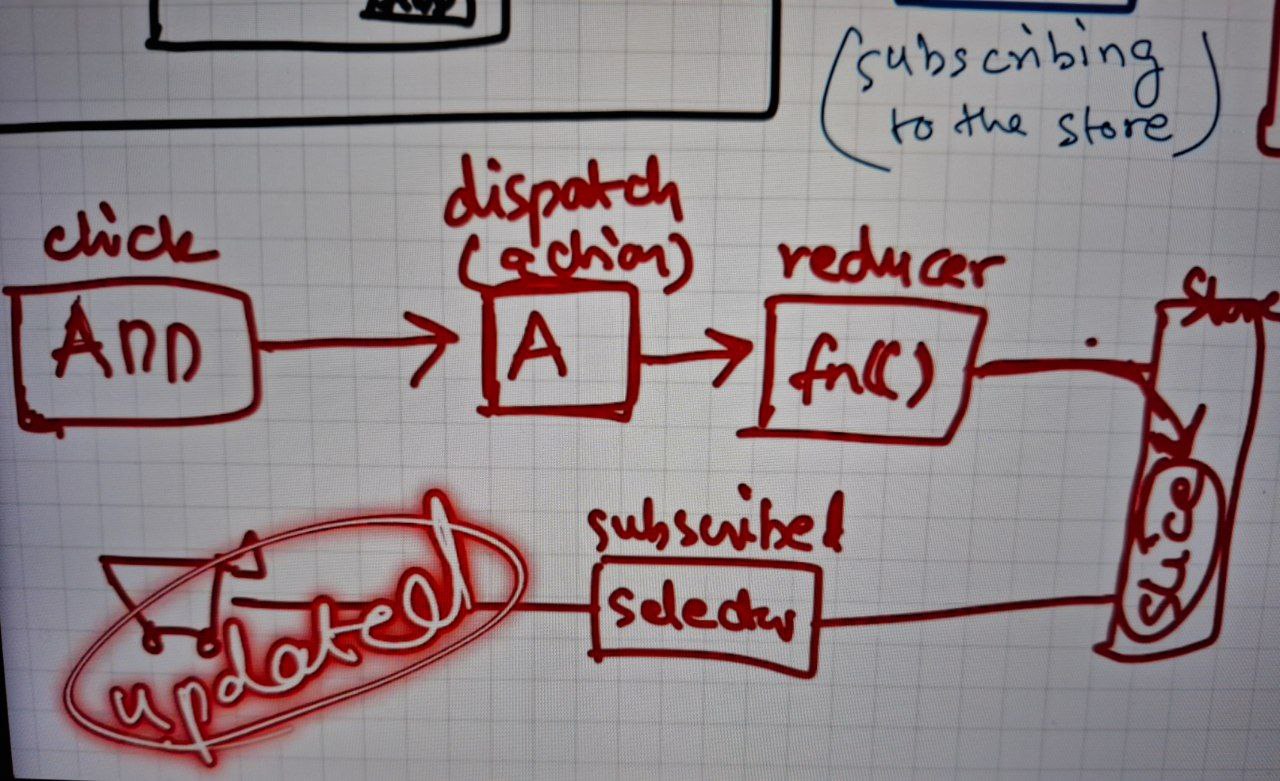 (subscribing
to the store)
click
ADD
dispatch
(action)
A
reducer
fn()
Store
slice
subscribed
selector
updated